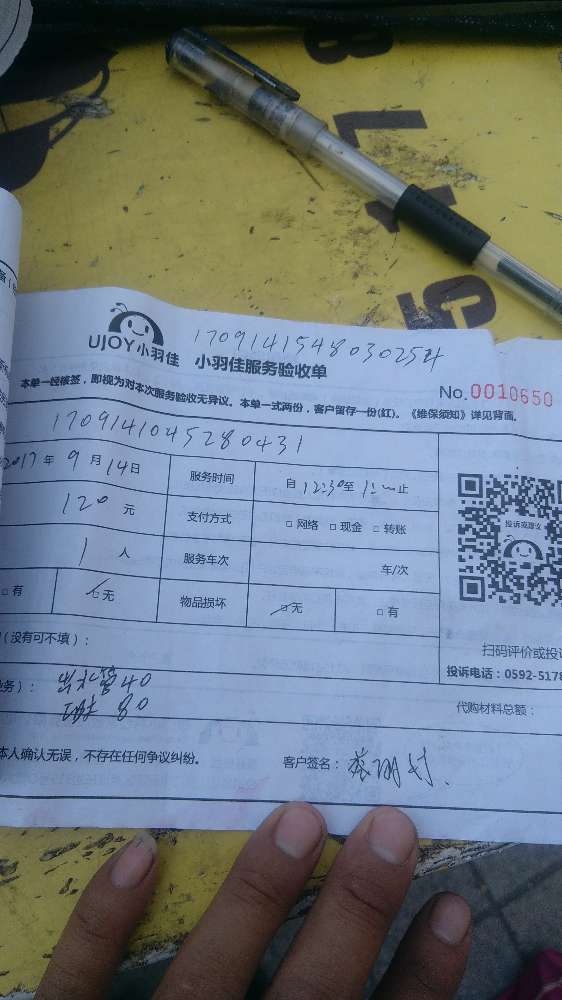 170914154803025
UJOY小羽佳 小羽佳服务验收单
No.0010650
本单一经核签，即视为对本次服务验收无异议。本单一式两份，客户留存一份(红)。《维保须知》详见背面。
1709141045280431
2017年9月14日 服务时间 自12:30至 止
120元 支付方式 □网络 □现金 □转账
1人 服务车次 车/次
□有 □无 物品损坏 □无 □有
投诉或建议
(没有可不填)：
扫码评价或投
投诉电话：0592-5178
务)：出水管40
80
代购材料总额：
本人确认无误，不存在任何争议纠纷。 客户签名：